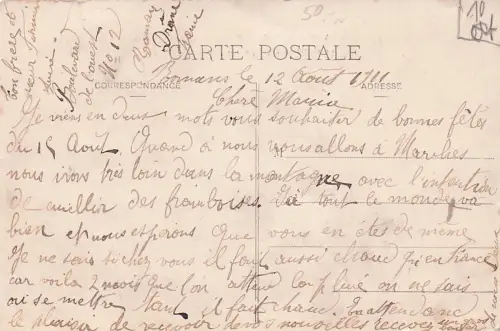 CARTE POSTALE
CORRESPONDANCE
ADRESSE
Romans le 12 Août 1911
Chere Maria
Je viens en deux mots vous souhaiter de bonnes fêtes
du 15 Août. Quand à nous nous allons à Marches
nous irons très loin dans la montagne avec l'intention
de cueillir des framboises. Ici tout le monde va
bien et nous esperons que vous en êtes de même
Je ne sais si chez vous il fait aussi chaud qu'en france
car voila 2 mois que l'on attend la pluie on ne sais
ou se mettre tant il fait chaud. En attendant
le plaisir de recevoir de vos nouvelles recevez
ton frere et
soeur
Boulevard
de l'ouest
No 12